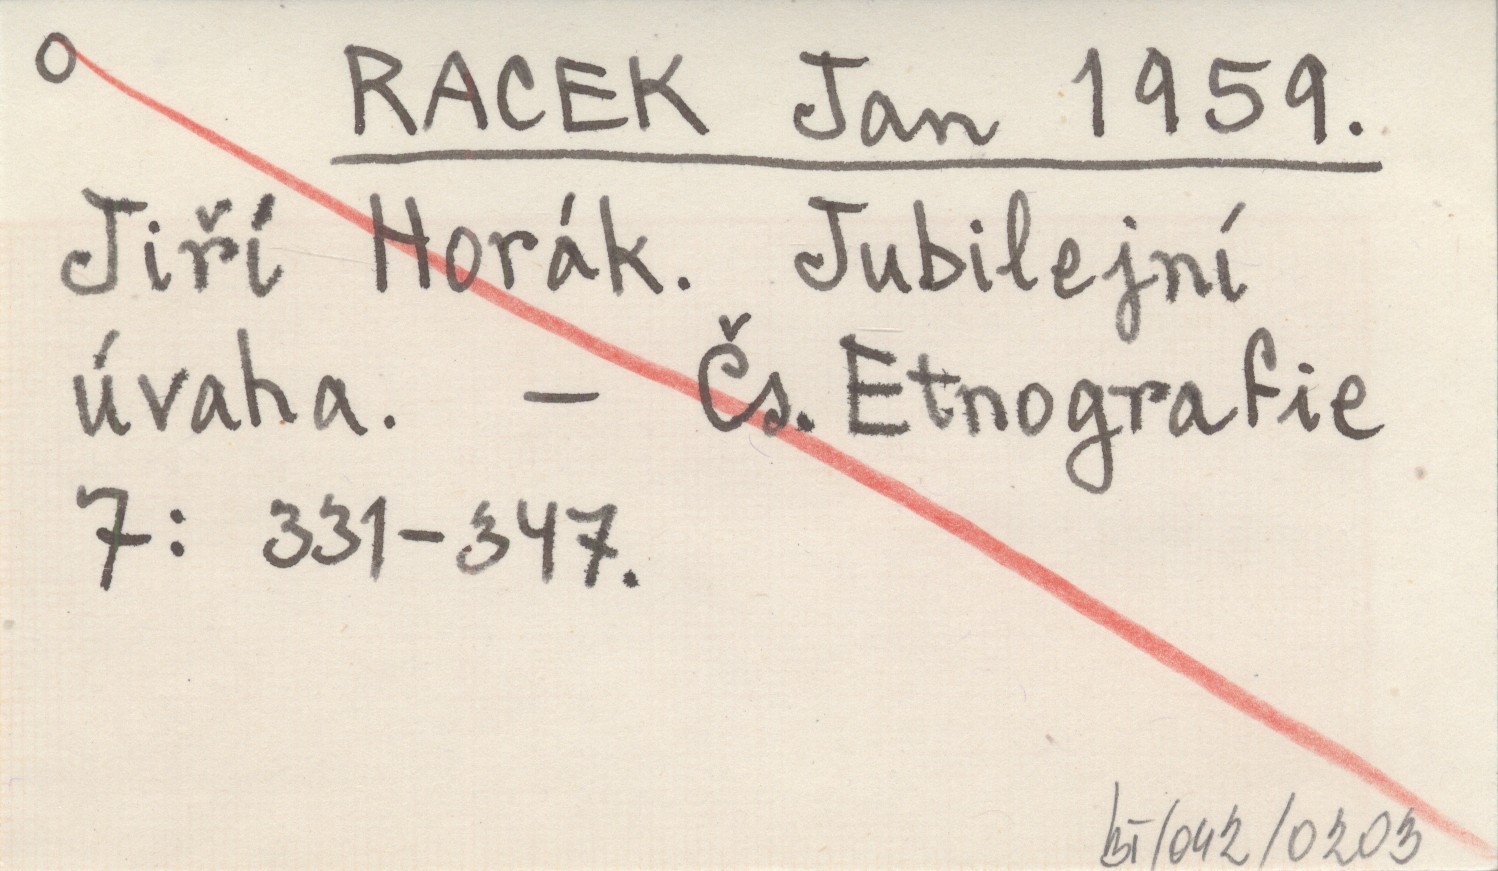 O RACEK Jan 1959.
Jiří Horák. Jubilejní
úvaha. – Čs. Etnografie
7: 331-347.
BI/042/0203